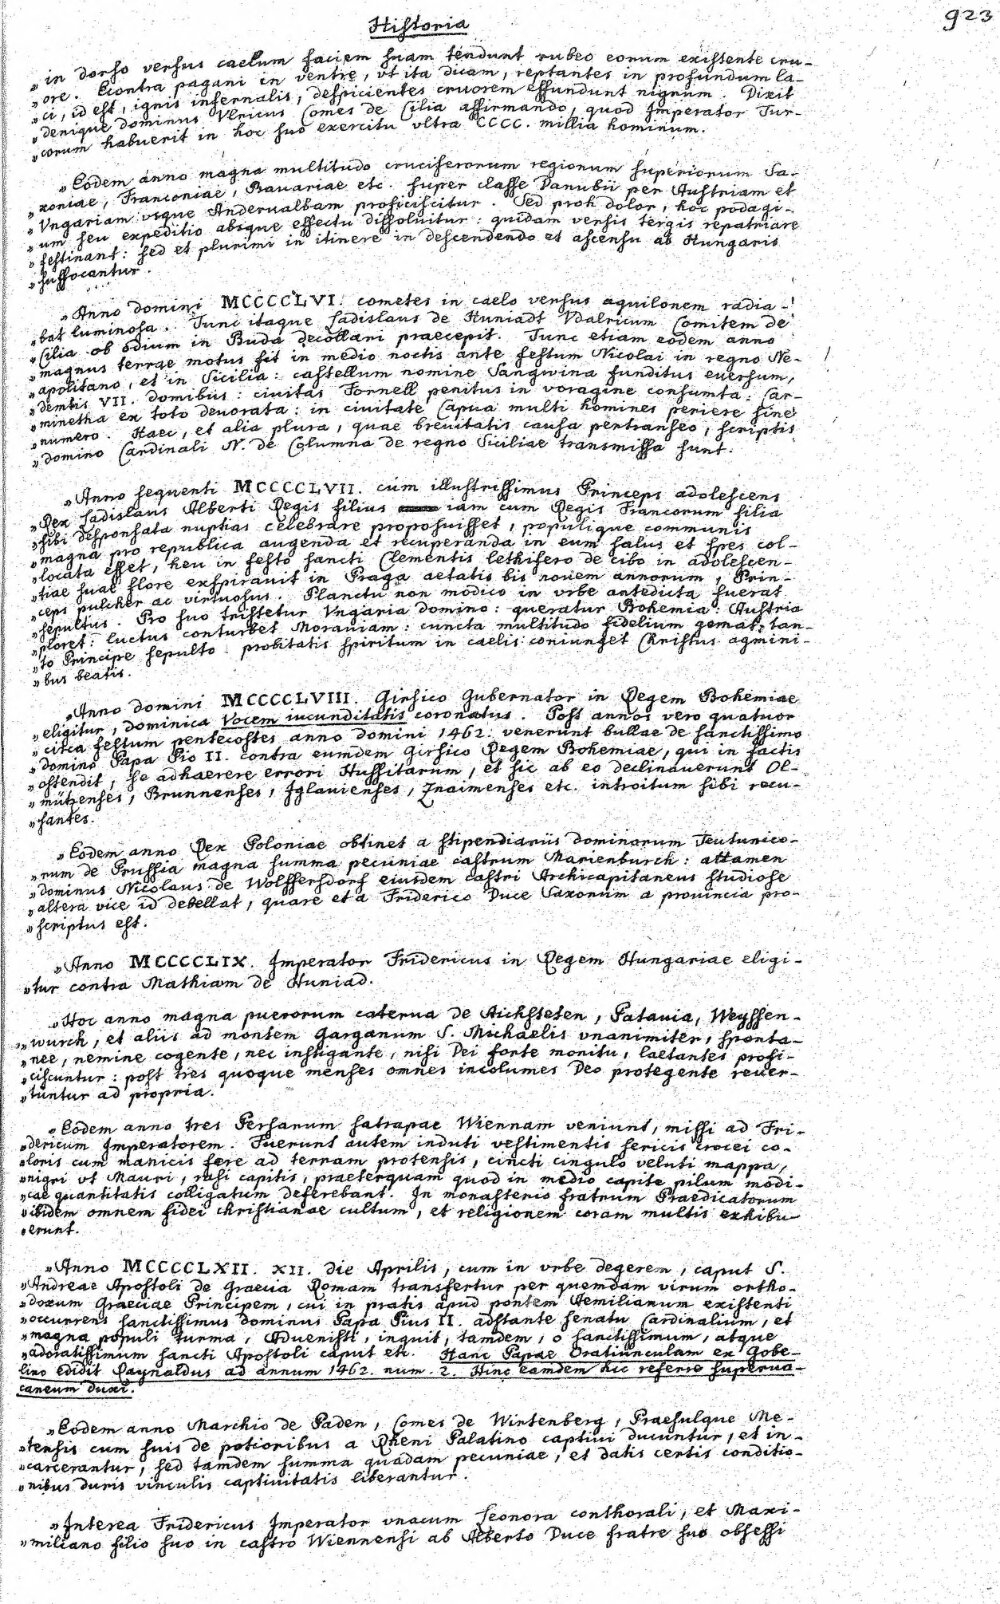 Historia
923
„in dorso versus caelum faciem suam tendunt rubeo eorum existente cru-
„ore. Econtra pagani in ventre, vt ita dicam, reptantes in profundum la-
„ci, id est, ignis infernalis, despicientes cruorem effundunt nigrum. Dixit
„denique dominus Vlricus Comes de Cilia affirmando, quod Imperator Tur-
„corum habuerit in hoc suo exercitu vltra CCCC. millia hominum.
„Eodem anno magna multitudo cruciferorum regionum superiorum Sa-
„xoniae, Franconiae, Bauariae etc. super classe Danubii per Austriam et
„Vngariam vsque Anderualbam proficiscitur. Sed proh dolor, hoc podagi-
„um seu expeditio absque effectu dissoluitur: quidam versis tergis repatriare
„festinant: sed et plurimi in itinere in descendendo et ascensu ab Hungaris
„suffocantur.
„Anno domini MCCCCLVI. cometes in caelo versus aquilonem radia-
„bat luminosa. Tunc itaque Ladislaus de Huniadt Vdalricum Comitem de
„Cilia ob odium in Buda decollari praecepit. Tunc etiam eodem anno
„magnus terrae motus fit in medio noctis ante festum Nicolai in regno Ne-
„apolitano, et in Sicilia: castellum nomine Sangwina funditus euersum,
„demtis VII. domibus: ciuitas Tornell penitus in voragine consumta: Car-
„minetha ex toto deuorata: in ciuitate Capua multi homines periere sine
„numero. Haec, et alia plura, quae breuitatis causa pertranseo, scriptis
„domino Cardinali N. de Columna de regno Siciliae transmissa sunt.
„Anno sequenti MCCCCLVII. cum illustrissimus Princeps adolescens
„Rex Ladislaus Alberti Regis filius iam cum Regis Francorum filia
„sibi desponsata nuptias celebrare proposuisset, populique communis
„magna pro republica augenda et recuperanda in eum salus et spes col-
„locata esset, heu in festo sancti Clementis lethifero de cibo in adolescen-
„tiae suae flore exspirauit in Praga aetatis bis nouem annorum, Prin-
„ceps pulcher ac virtuosus. Planctu non modico in vrbe antedicta fuerat
„sepultus. Pro suo tristetur Vngaria domino: queratur Bohemia: Austria
„ploret: luctus conturbet Morauiam: cuncta multitudo fidelium gemat, tan-
„to Principe sepulto. probitatis spiritum in caelis coniunget Christus agmini-
„bus beatis.
„Anno domini MCCCCLVIII. Girsico Gubernator in Regem Bohemiae
„eligitur, dominica Vocem iucunditatis coronatus. Post annos vero quatuor
„circa festum pentecostes anno domini 1462. venerunt bullae de sanctissimo
„domino Papa Pio II. contra eumdem Girsico Regem Bohemiae, qui in factis
„ostendit, se adhaerere errori Hussitarum, et sic ab eo declinauerunt Ol-
„mützenses, Brunnenses, Iglauienses, Znaimenses etc. introitum sibi recu-
„santes.
„Eodem anno Rex Poloniae obtinet a stipendiariis dominorum Teutunico-
„rum de Prussia magna summa pecuniae castrum Marienburch: attamen
„dominus Nicolaus de Wolffersdorf eiusdem castri Archicapitaneus studiose
„altera vice id debellat, quare et a Friderico Duce Saxonum a prouincia pro-
„scriptus est.
„Anno MCCCCLIX. Imperator Fridericus in Regem Hungariae eligi-
„tur contra Mathiam de Huniad.
„Hoc anno magna puerorum caterua de Aichsteten, Patauia, Weyssen-
„wurch, et aliis ad montem Garganum S. Michaelis vnanimiter, sponta-
„nee, nemine cogente, nec instigante, nisi Dei forte monitu, laetantes profi-
„ciscuntur: post tres quoque menses omnes incolumes Deo protegente reuer-
„tuntur ad propria.
„Eodem anno tres Persarum satrapae Wiennam veniunt, missi ad Fri-
„dericum Imperatorem. Fuerunt autem induti vestimentis sericis crocei co-
„loris cum manicis fere ad terram protensis, cincti cingulo veluti mappa,
„nigri vt Mauri, rasi capitis, praeterquam quod in medio capite pilum modi-
„cae quantitatis colligatum deferebant. In monasterio fratrum Praedicatorum
„ibidem omnem fidei christianae cultum, et religionem coram multis exhibu-
„erunt.
„Anno MCCCCLXII. XII. die Aprilis, cum in vrbe degerem, caput S.
„Andreae Apostoli de Graecia Romam transfertur per quemdam virum ortho-
„doxum Graeciae Principem, cui in pratis apud pontem Aemilianum existenti
„occurrens sanctissimus dominus Papa Pius II. adstante senatu Cardinalium, et
„magna populi turma, Aduenisti, inquit, tamdem, o sanctissimum, atque
„adoratissimum sancti Apostoli caput etc. Hanc Papae oratiunculam ex Gobe-
lino edidit Raynaldus ad annum 1462. num. 2. Hinc eamdem hic referre superua-
caneum duxi.
„Eodem anno Marchio de Paden, Comes de Wirtenberg, Praesulque Me-
„tensis cum suis de potioribus a Rheni Palatino captiui ducuntur, et in-
„carcerantur, sed tamdem summa quadam pecuniae, et datis certis conditio-
„nibus duris vinculis captiuitatis liberantur.
„Interea Fridericus Imperator vnacum Leonora conthorali, et Maxi-
„miliano filio suo in castro Wiennensi ab Alberto Duce fratre suo obsessi